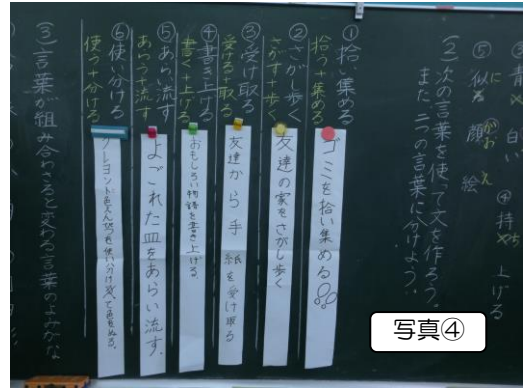 ④ 持ち 上げる
⑤ 似顔絵
(2) 次の言葉を使って文を作ろう。
また、二つの言葉に分けよう。
① 拾い集める
拾う+集める
ゴミを拾い集める
② さがし歩く
さがす+歩く
友達の家をさがし歩く
③ 受け取る
受ける+取る
友達から手紙を受け取る
④ 書き上げる
書く+上げる
おもしろい物語を書き上げる。
⑤ あらい流す
あらう+流す
よごれた皿をあらい流す。
⑥ 使い分ける
使う+分ける
(3) 言葉が組み合わさると変わる言葉のよみかな
写真④